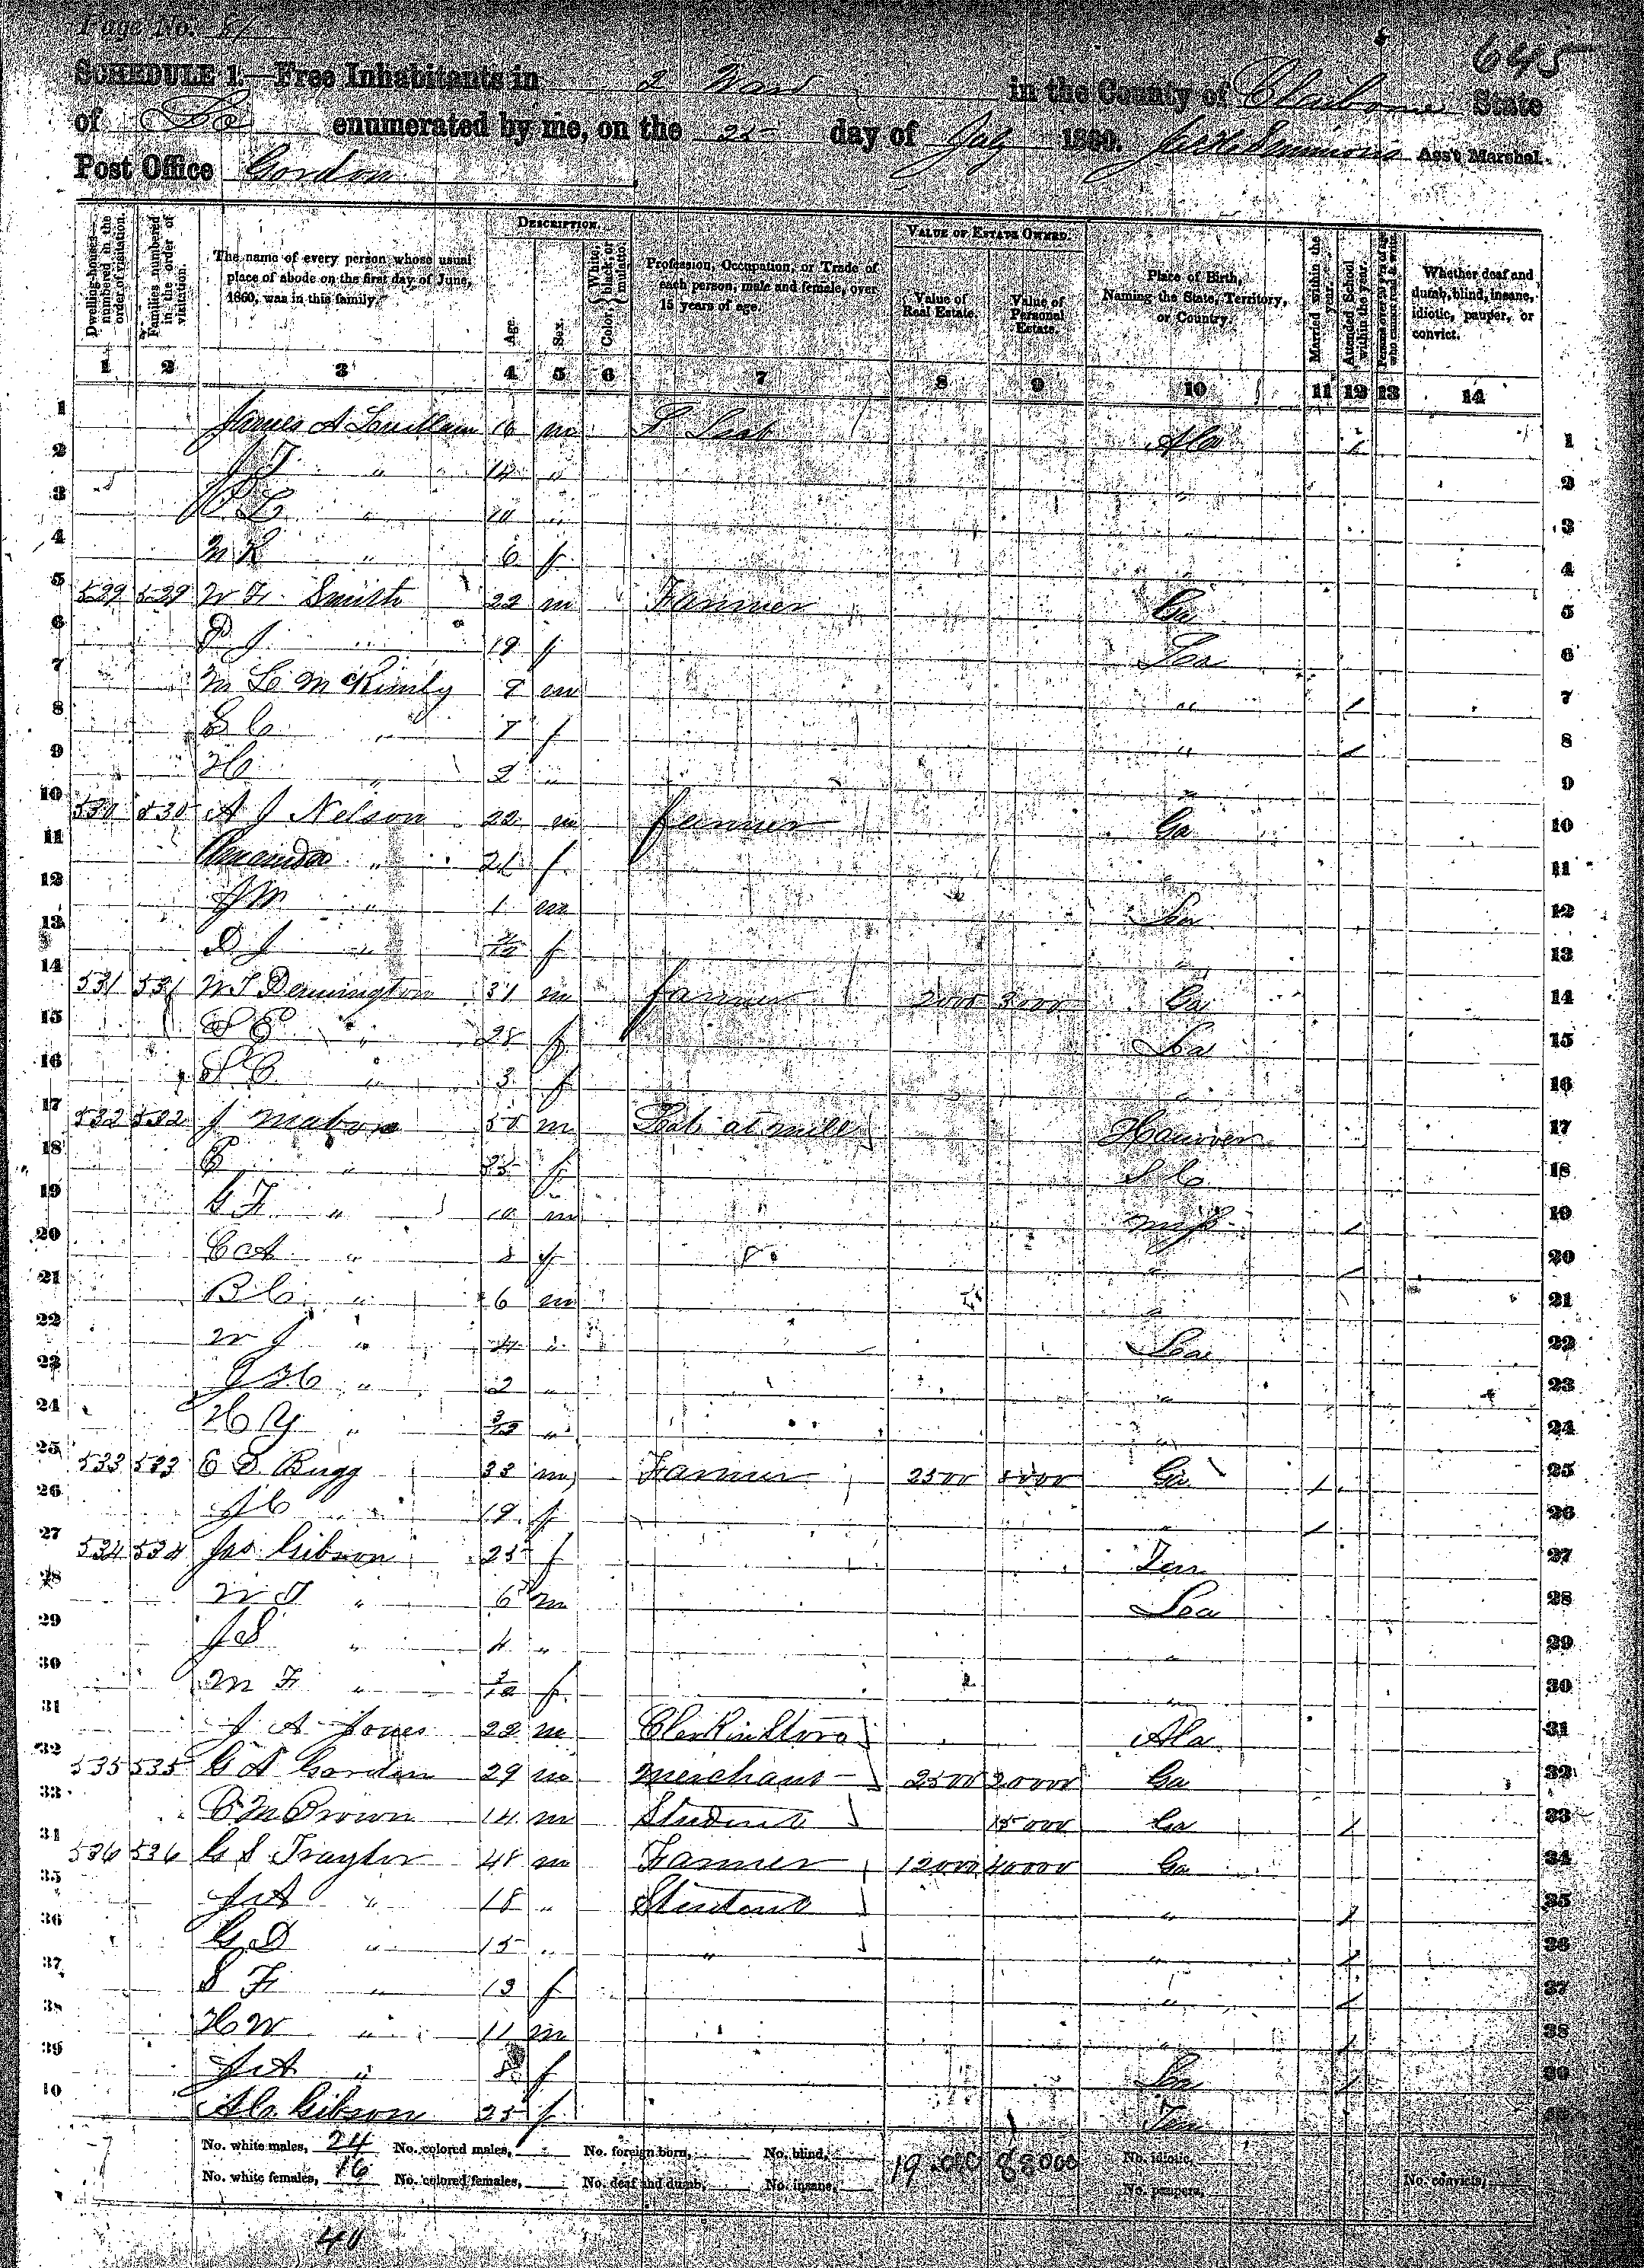 Page No. 81
645
SCHEDULE 1.—Free Inhabitants in 2 Ward in the County of Claiborne State
of La enumerated by me, on the 25 day of July 1860. Ass't Marshal.
Post Office Gordon
Dwelling-houses—numbered in the order of visitation.
Families numbered in the order of visitation.
The name of every person whose usual place of abode on the first day of June, 1860, was in this family.
DESCRIPTION.
Age.
Sex.
Color, { White, black, or mulatto.
Profession, Occupation, or Trade of each person, male and female, over 15 years of age.
VALUE OF ESTATE OWNED.
Value of Real Estate.
Value of Personal Estate.
Place of Birth, Naming the State, Territory, or Country.
Married within the year.
Attended School within the year.
Persons over 20 y'rs of age who cannot read & write.
Whether deaf and dumb, blind, insane, idiotic, pauper, or convict.
1 2 3 4 5 6 7 8 9 10 11 12 13 14
1 James A 16 m Ala / 1
2 J T " 14 " " 2
3 " 10 " " 3
4 M R " 6 f 4
5 529 529 W F Smith 22 m Farmer Ga 5
6 P J " 19 f Loa 6
7 M L McKimly 9 m " / 7
8 S C " 7 f " / 8
9 H " 2 " " 9
10 530 530 A J Nelson 22 m farmer Ga 10
11 Amanda " 21 f " 11
12 J M " 1 m Loa 12
13 D J " f " 13
14 531 531 W T Dennington 31 m farmer 2000 3000 Ga 14
15 S E " 28 f Loa 15
16 S C " 3 f " 16
17 532 532 J Mabon 50 m Lab at mill Hanover 17
18 E " 33 f S C 18
19 G F " 10 m Miss / 19
20 C A " 8 f " / 20
21 B C " 6 m " 21
22 W J " 4 " Loa 22
23 J H " 2 " " 23
24 H Y " 3/12 " " 24
25 533 533 C D Bugg 23 m Farmer 2500 5000 Ga / 25
26 J C " 19 f / 26
27 534 534 Jas Gibson 25 f Ten 27
28 W J " 6 m Loa 28
29 J S " 4 " " 29
30 M F " 3/12 f " 30
31 J A Jones 22 m Clerk in Store Ala 31
32 535 535 G A Gordon 29 m Merchant 2500 20000 Ga 32
33 C M Brown 14 m Student 15000 Ga / 33
34 536 536 G S Traylor 48 m Farmer 12000 40000 Ga 34
35 J A " 18 " Student " / 35
36 G D " 15 " " " / 36
37 S F " 13 f " / 37
38 H W " 11 m " / 38
39 J A " 8 f Loa / 39
40 A C Gibson 25 f Ten 40
No. white males, 24 No. colored males, No. foreign born, No. blind, 19.000 83000 No. idiotic,
No. white females, 16 No. colored females, No. deaf and dumb, No. insane, No. paupers, No. convicts,
40